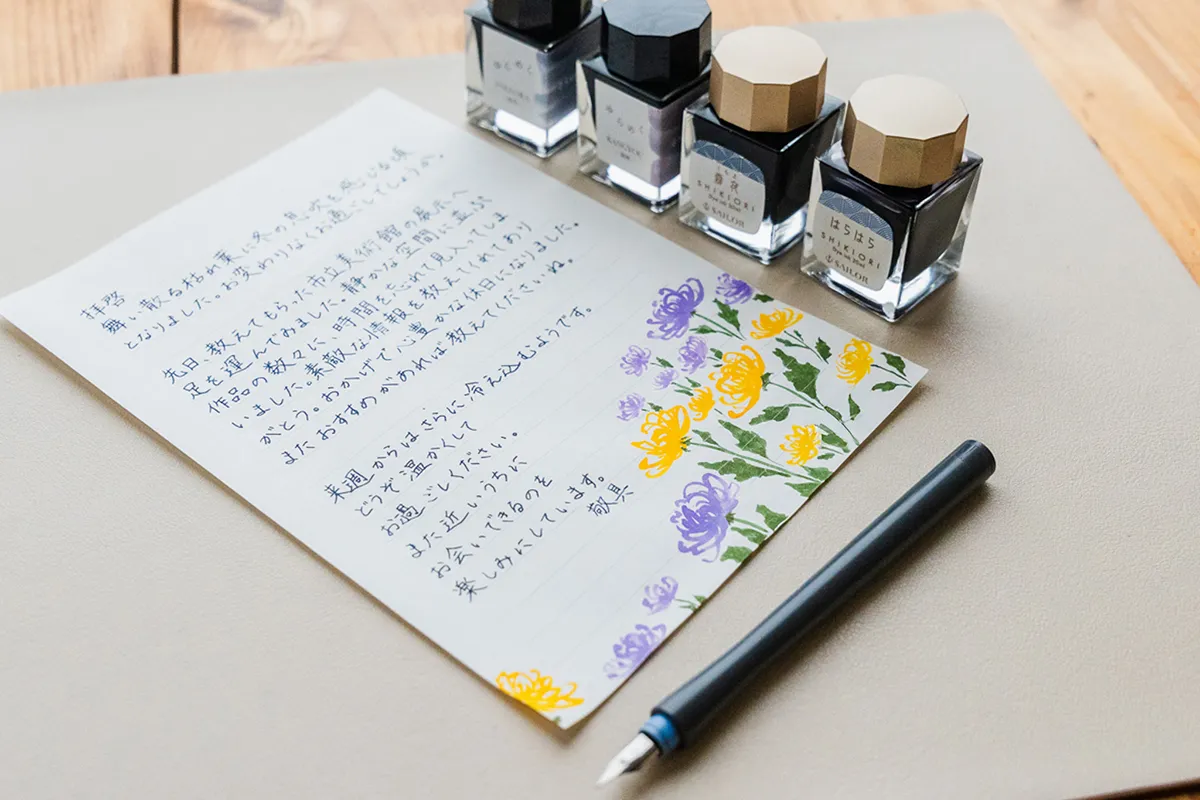 拝啓
舞い散る枯れ葉に冬の息吹を感じる頃
となりました。お変わりなくお過ごしでしょうか。
先日、教えてもらった市立美術館の展示へ
足を運んでみました。静かな空間に並ぶ
作品の数々に、時間を忘れて見入ってしま
いました。素敵な情報を教えてくれてあり
がとう。おかげで心豊かな休日になりました。
またおすすめがあれば教えてくださいね。
来週からはさらに冷え込むようです。
どうぞ温かくして
お過ごしください。
また近いうちに
お会いできるのを
楽しみにしています。
敬具
ゆらめく
ゆらめく
KANGYOU
SHIKIORI
Dye ink 20ml
SAILOR
はらはら
SHIKIORI
Dye ink 20ml
SAILOR